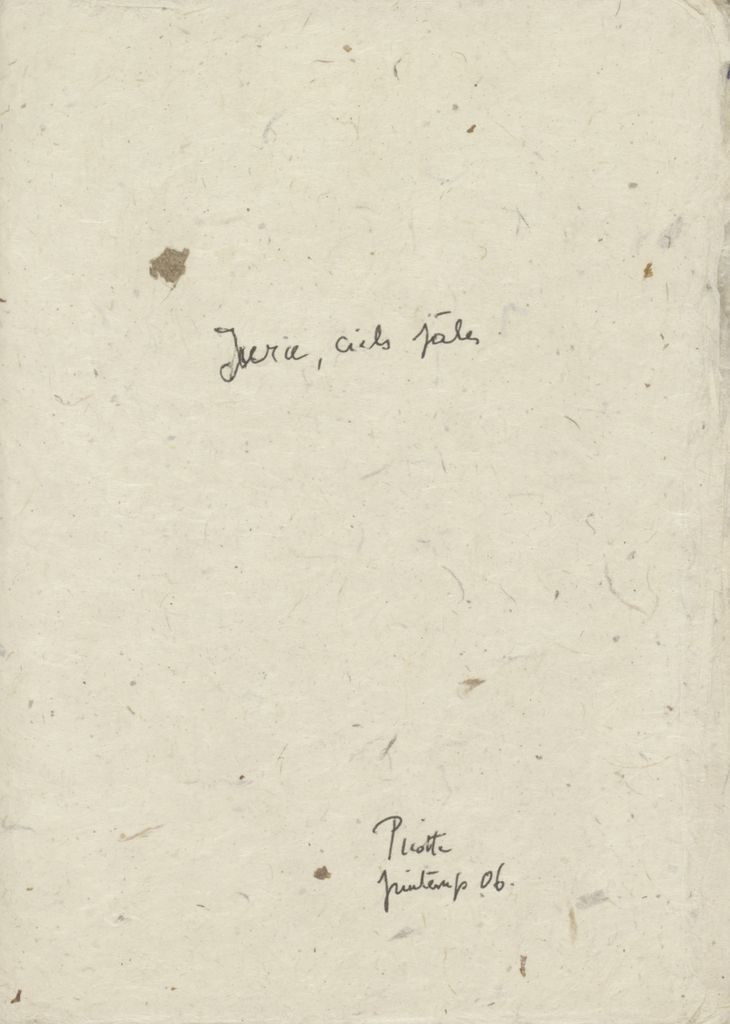 Jura, ciels pâles
Picotte
printemps 06.